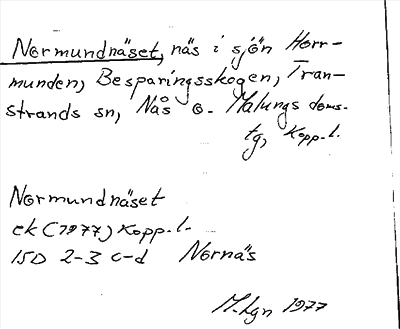 Normundnäset, näs i sjön Horr-
munden, Besparingsskogen, Tran-
strands sn, Nås o. Malungs doms-
tg, Kopp. l.
Normundnäset
ek (1977) Kopp. l.
15D 2-3 c-d Nornäs
M. Lgn 1977